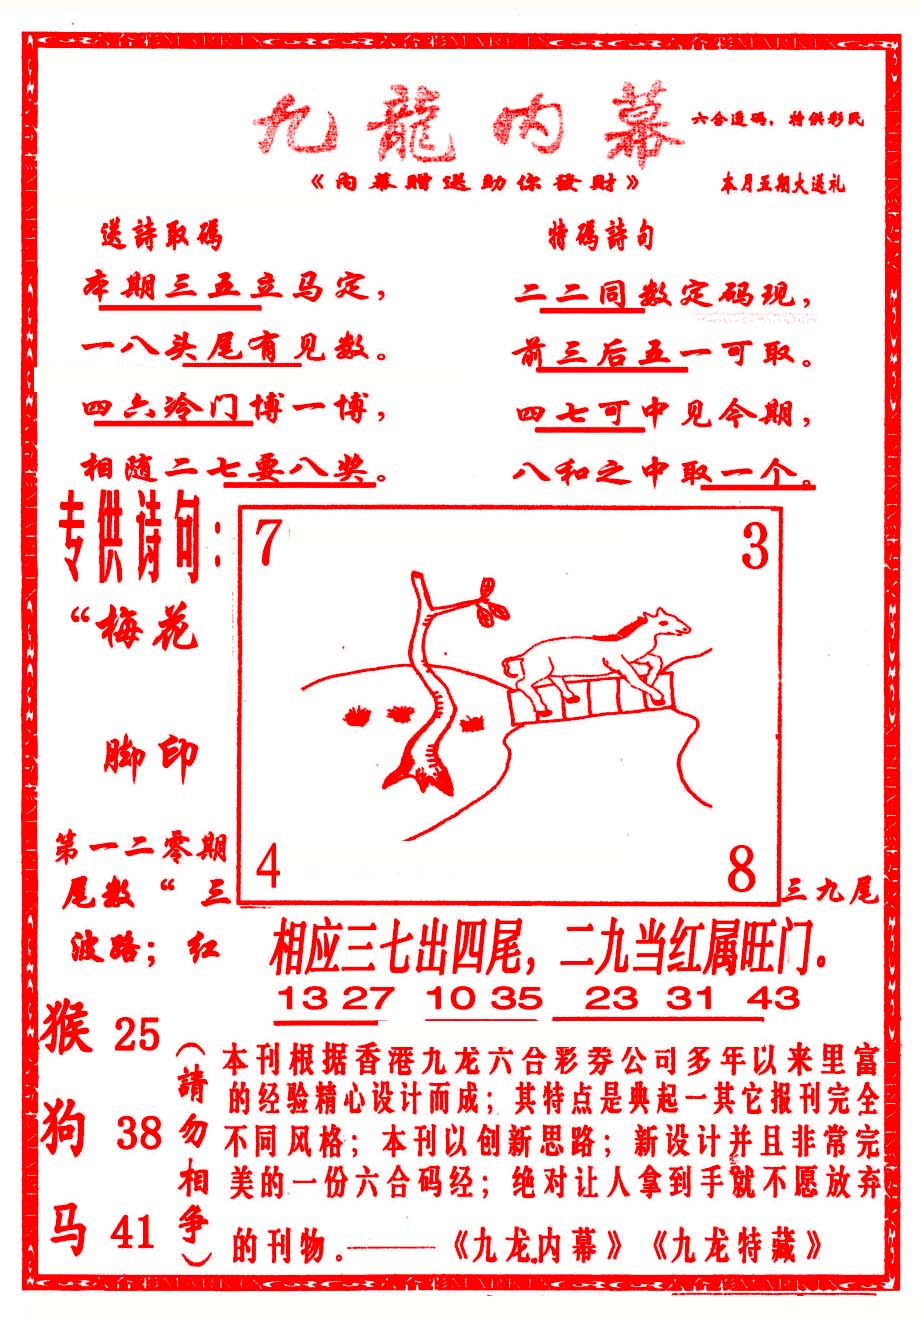 九龍内幕
六合透码，特供彩民
《内幕赠送助你發財》
本月五期大送礼
送詩取碼
本期三五立马定，
一八头尾有见数。
四六冷门博一博，
相随二七要八奖。
特碼詩句
二二同数定码现，
前三后五一可取。
四七可中见今期，
八和之中取一个。
专供诗句：
“梅花
脚印
7
3
4
8
第一二零期
尾数“三
三九尾
波路；红
相应三七出四尾，二九当红属旺门。
13 27 10 35 23 31 43
猴 25
狗 38
马 41
（請勿相争）
本刊根据香港九龙六合彩劵公司多年以来里富
的经验精心设计而成；其特点是典起一其它报刊完全
不同风格；本刊以创新思路；新设计并且非常完
美的一份六合码经；绝对让人拿到手就不愿放弃
的刊物。——《九龙内幕》《九龙特藏》